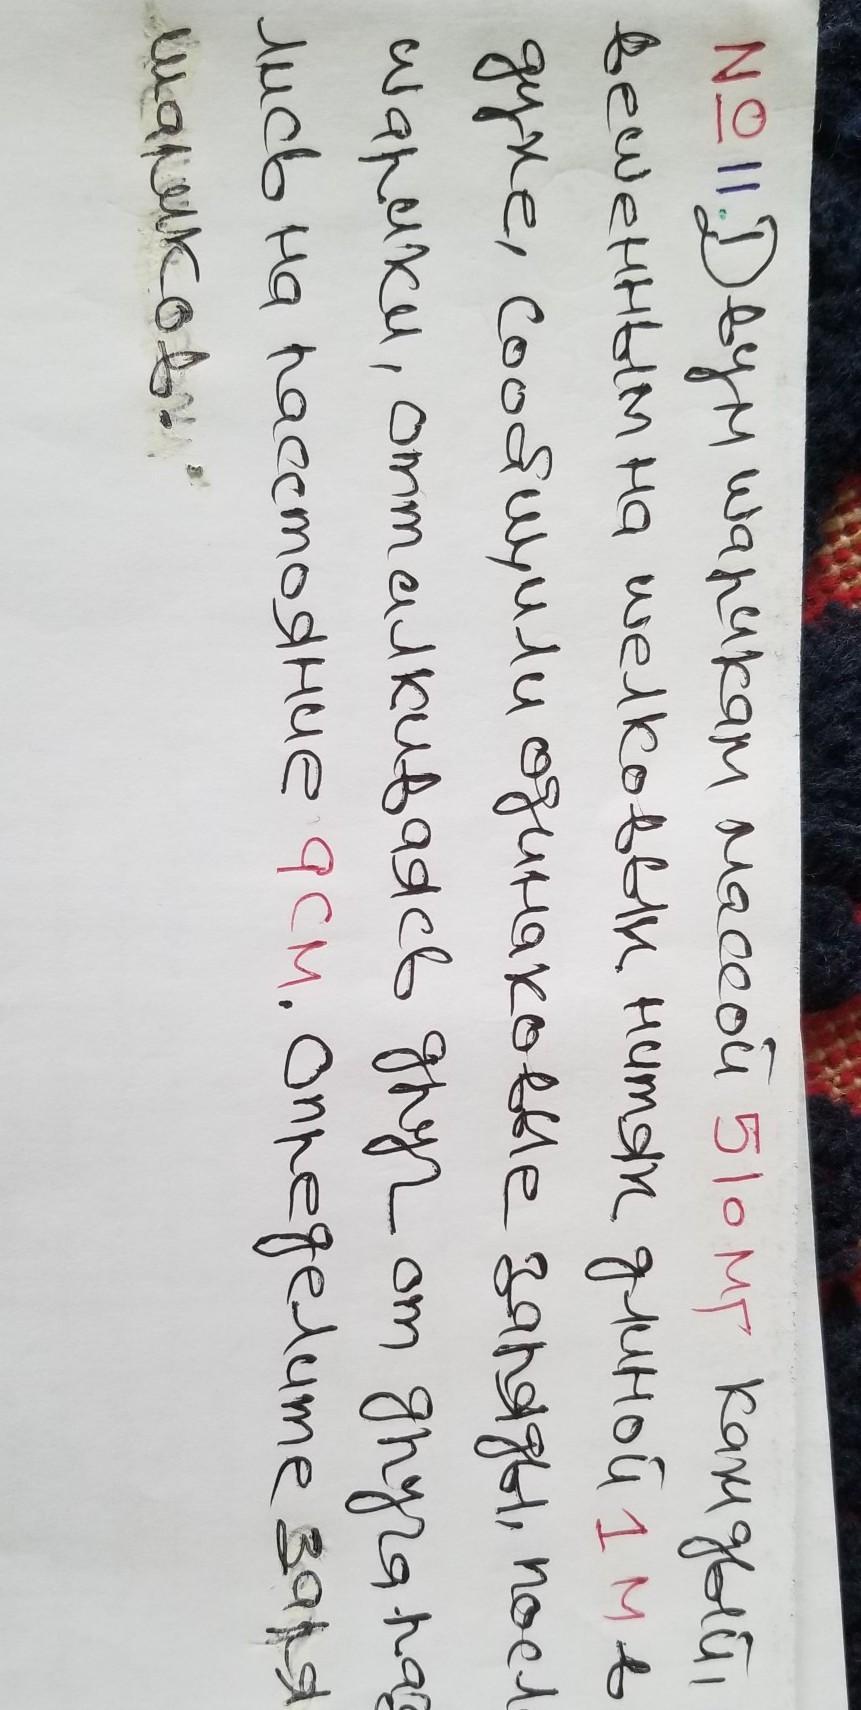 №11. Двум шарикам массой 510мг каждый,
вешенным на шелковых нитях длиной 1м в
духе, сообщили одинаковые заряды, посл
шарики, отталкиваясь друг от друга раз
лись на расстояние 9см. Определите заря
шариков.